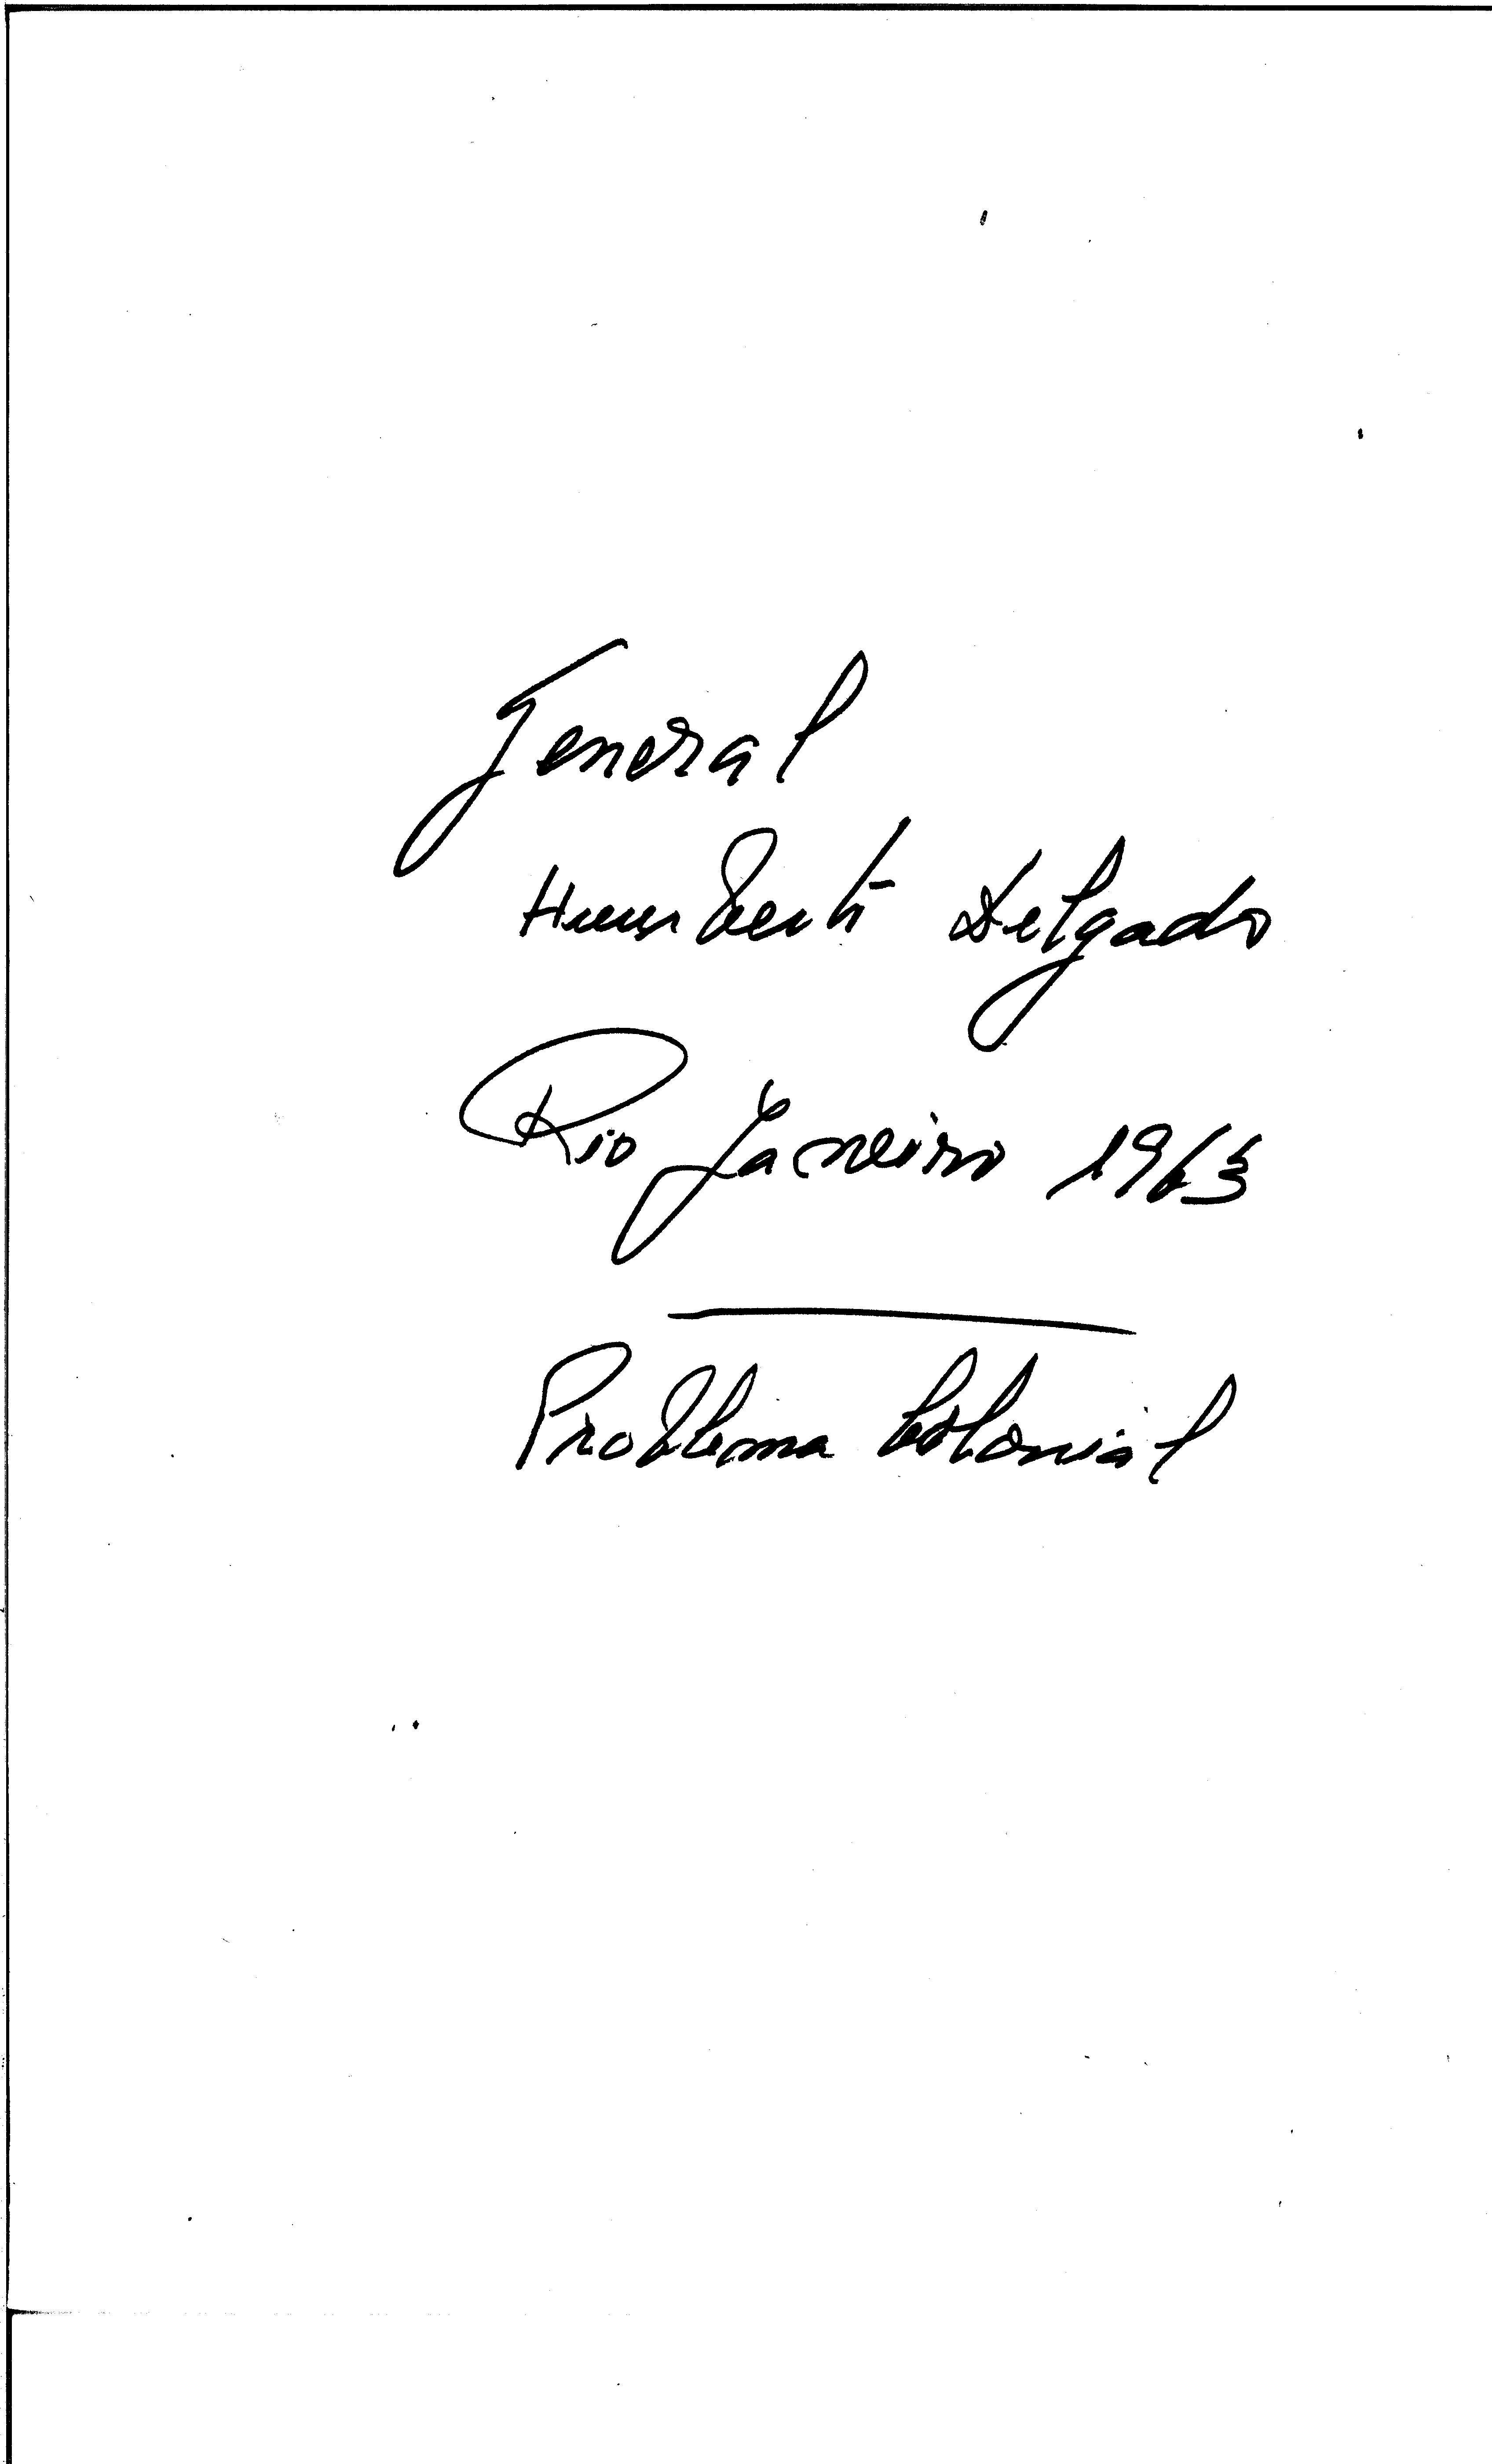 General
Humberto Delgado
Rio Janeiro 1963
Problema Colonial